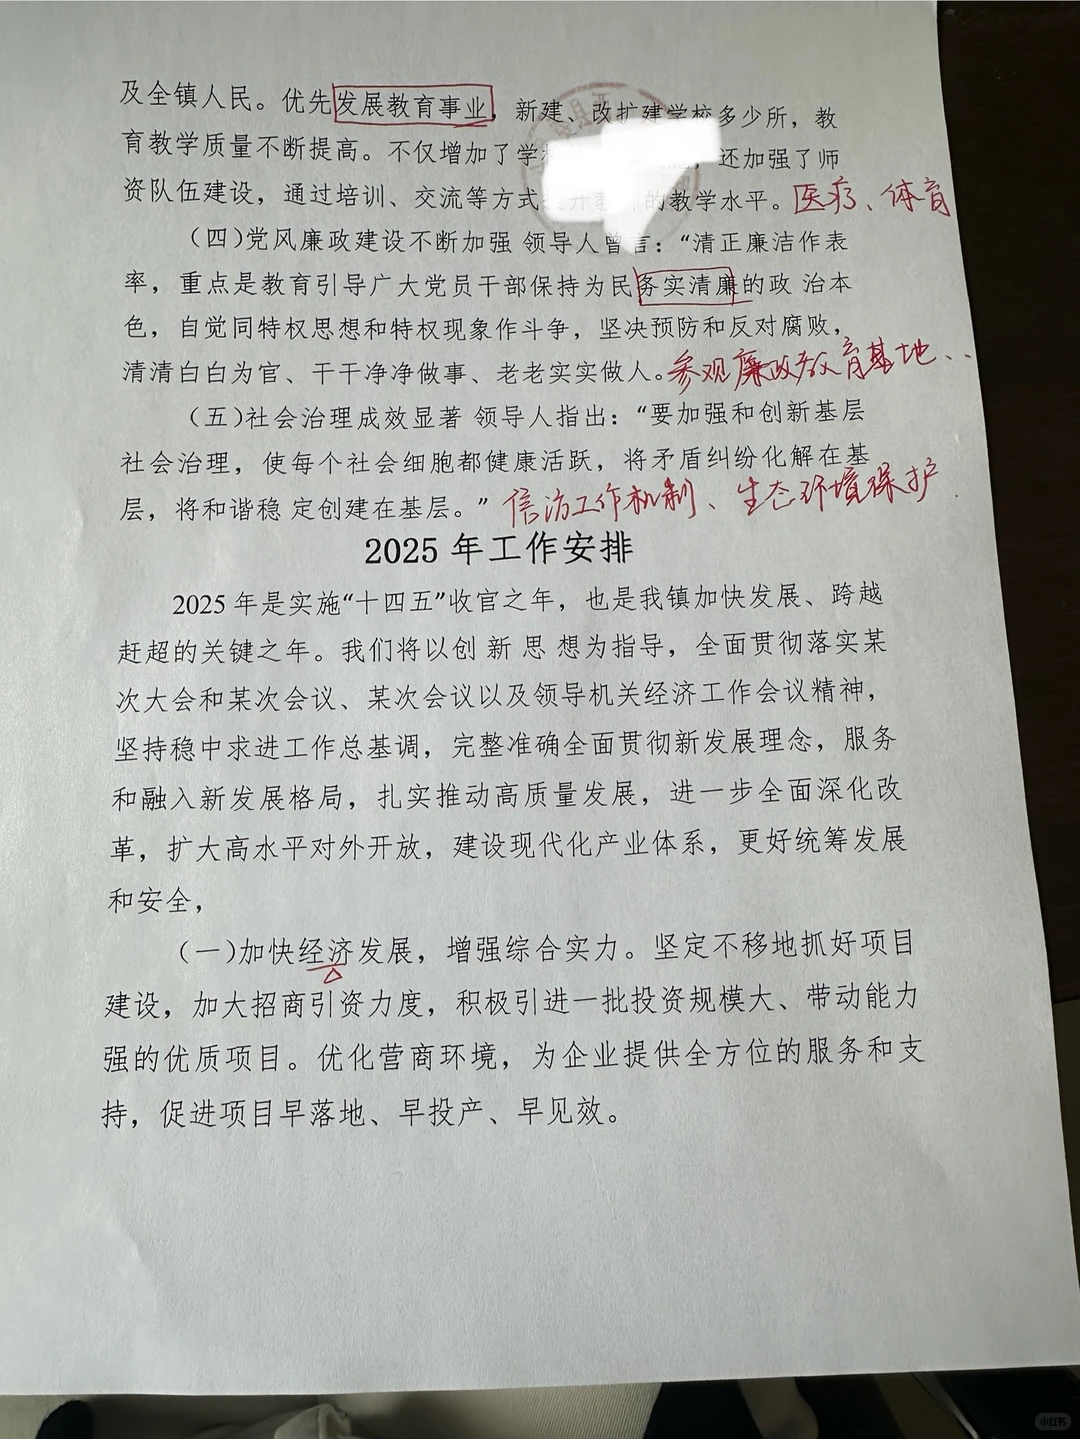 及全镇人民。优先发展教育事业，新建、改扩建学校多少所，教
育教学质量不断提高。不仅增加了学 ，还加强了师
资队伍建设，通过培训、交流等方式 的教学水平。医疗、体育
（四）党风廉政建设不断加强 领导人曾言：“清正廉洁作表
率，重点是教育引导广大党员干部保持为民务实清廉的政 治本
色，自觉同特权思想和特权现象作斗争，坚决预防和反对腐败，
清清白白为官、干干净净做事、老老实实做人。参观廉政教育基地...
（五）社会治理成效显著 领导人指出：“要加强和创新基层
社会治理，使每个社会细胞都健康活跃，将矛盾纠纷化解在基
层，将和谐稳 定创建在基层。” 信访工作机制、生态环境保护
2025 年工作安排
2025 年是实施“十四五”收官之年，也是我镇加快发展、跨越
赶超的关键之年。我们将以创 新 思 想为指导，全面贯彻落实某
次大会和某次会议、某次会议以及领导机关经济工作会议精神，
坚持稳中求进工作总基调，完整准确全面贯彻新发展理念，服务
和融入新发展格局，扎实推动高质量发展，进一步全面深化改
革，扩大高水平对外开放，建设现代化产业体系，更好统筹发展
和安全，
（一）加快经济发展，增强综合实力。坚定不移地抓好项目
建设，加大招商引资力度，积极引进一批投资规模大、带动能力
强的优质项目。优化营商环境，为企业提供全方位的服务和支
持，促进项目早落地、早投产、早见效。
小红书